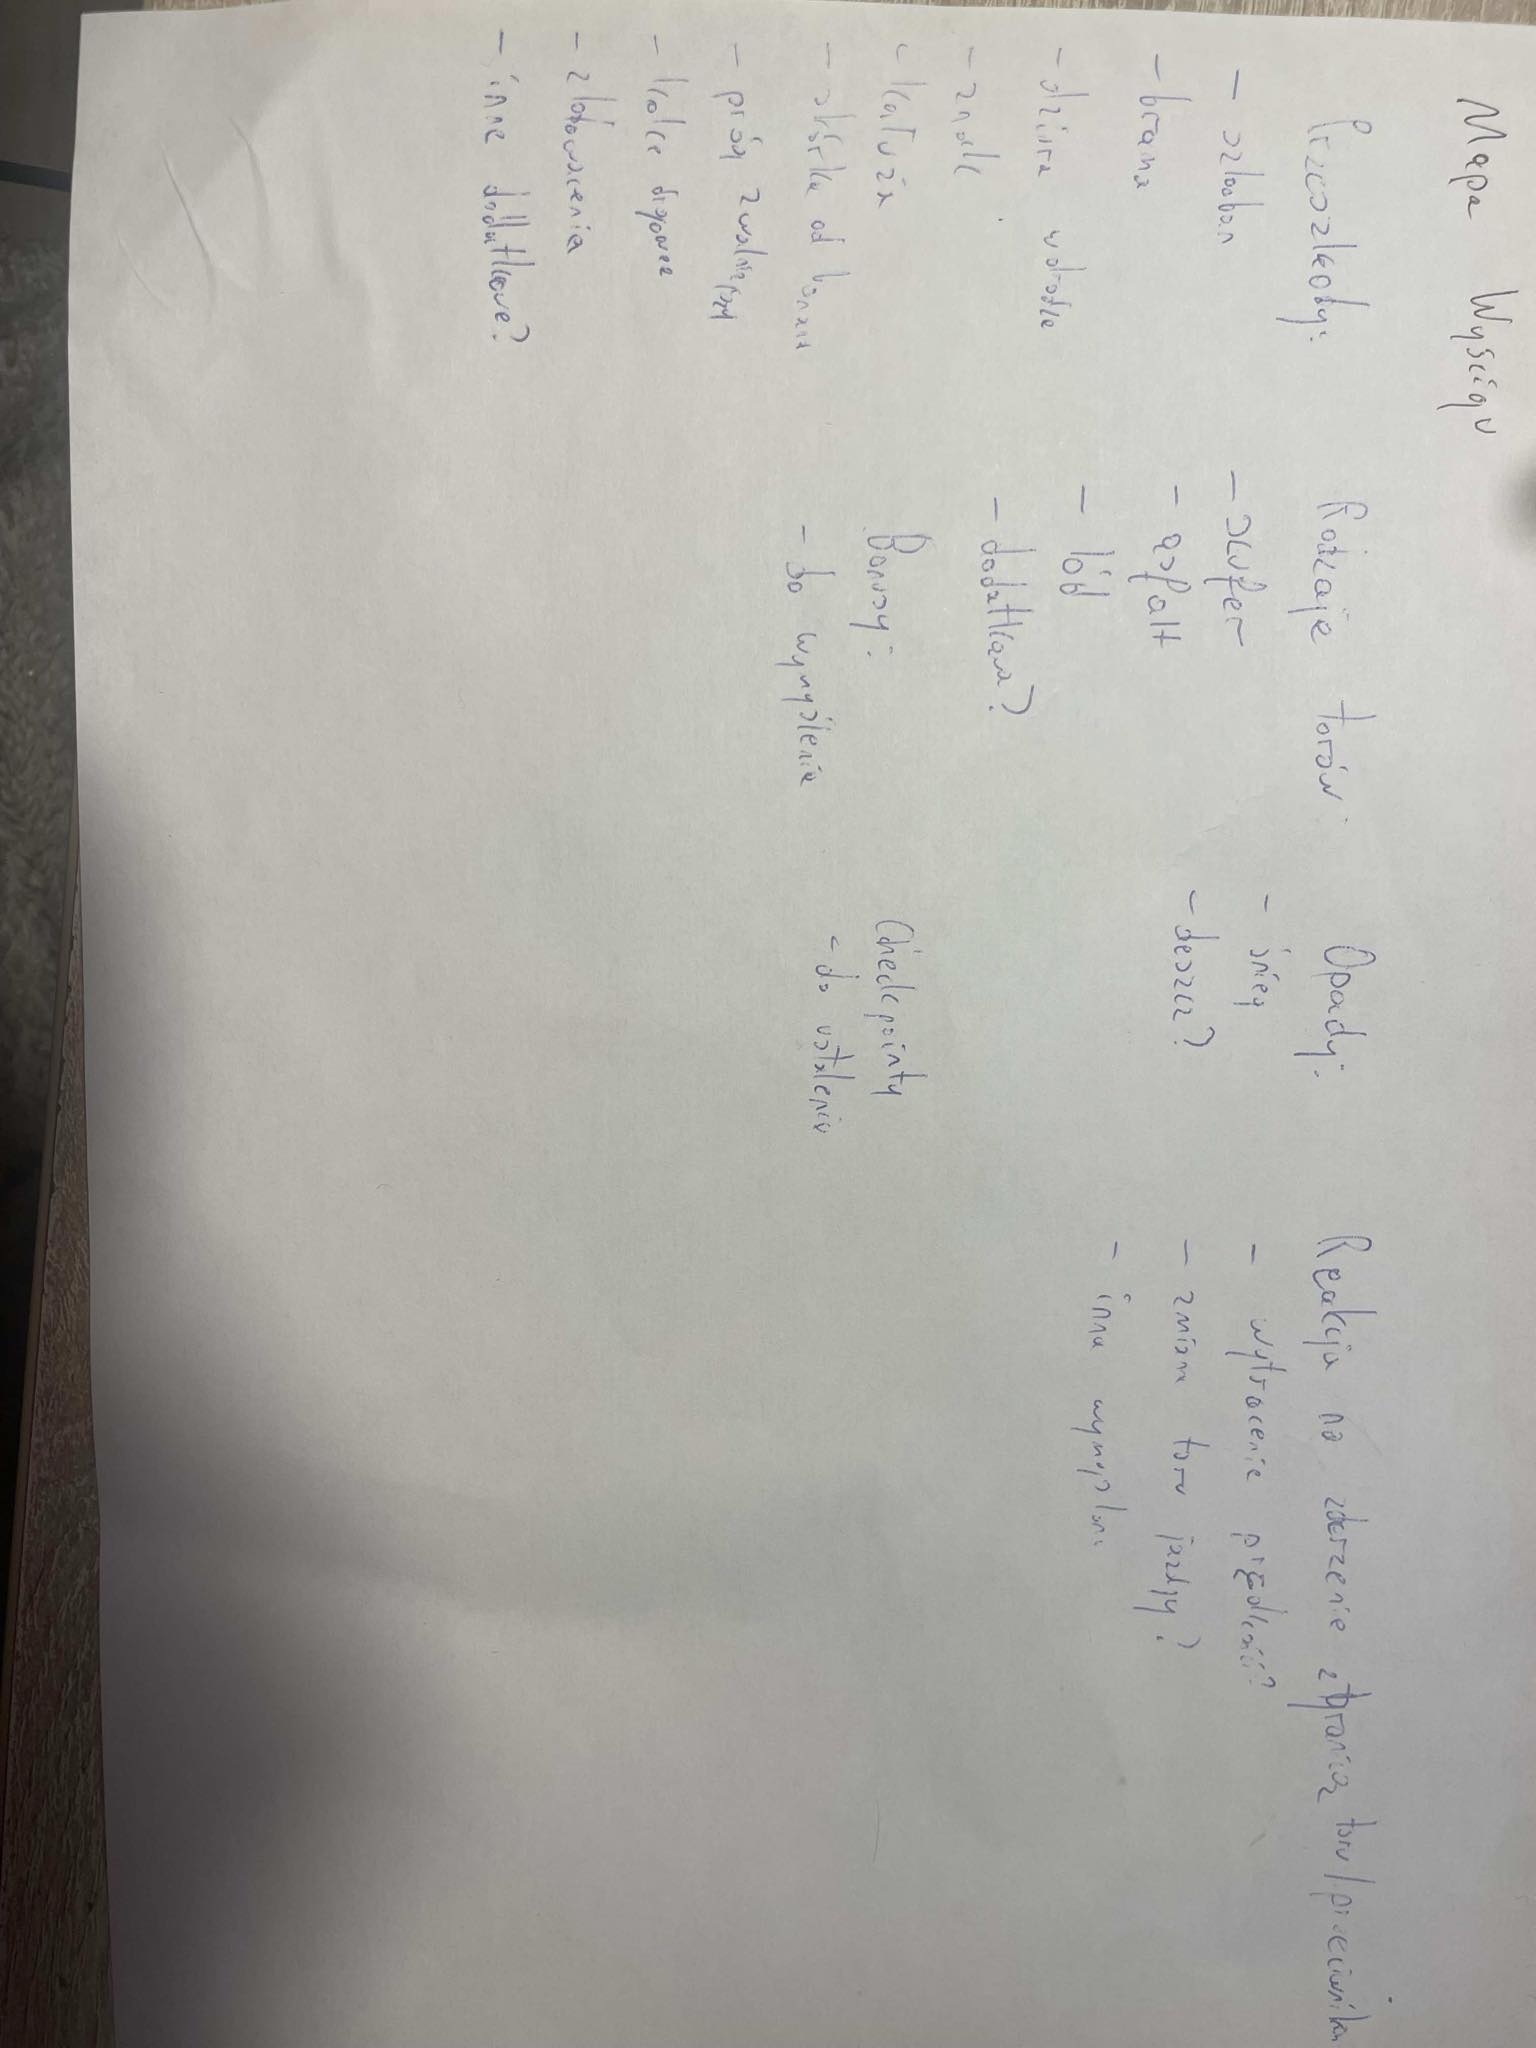 Mapa Wyścigu
Przeszkody:
- szlaban
- brama
- dziura w drodze
- znak
- kałuża
- skórka od banana
- próg zwalniający
- kolce drogowe
- zlodowacenia
- inne dodatkowe?
Rodzaje torów
- szuter
- asfalt
- lód
- dodatkowa?
Bonusy:
- do wymyślenia
Opady:
- śnieg
- deszcz?
Checkpointy
- do ustalenia
Reakcja na zderzenie z granicą toru/przeciwnikem
- wytracenie prędkości?
- zmiana toru jazdy?
- inna wymyślona